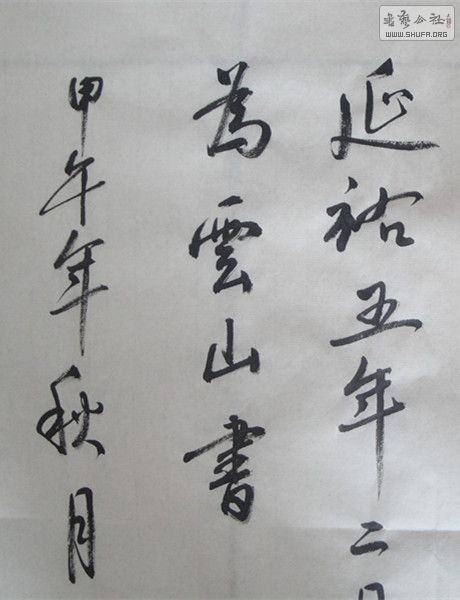 延祐五年二月
為雲山書
甲午年秋月
書藝公社
WWW.SHUFA.ORG